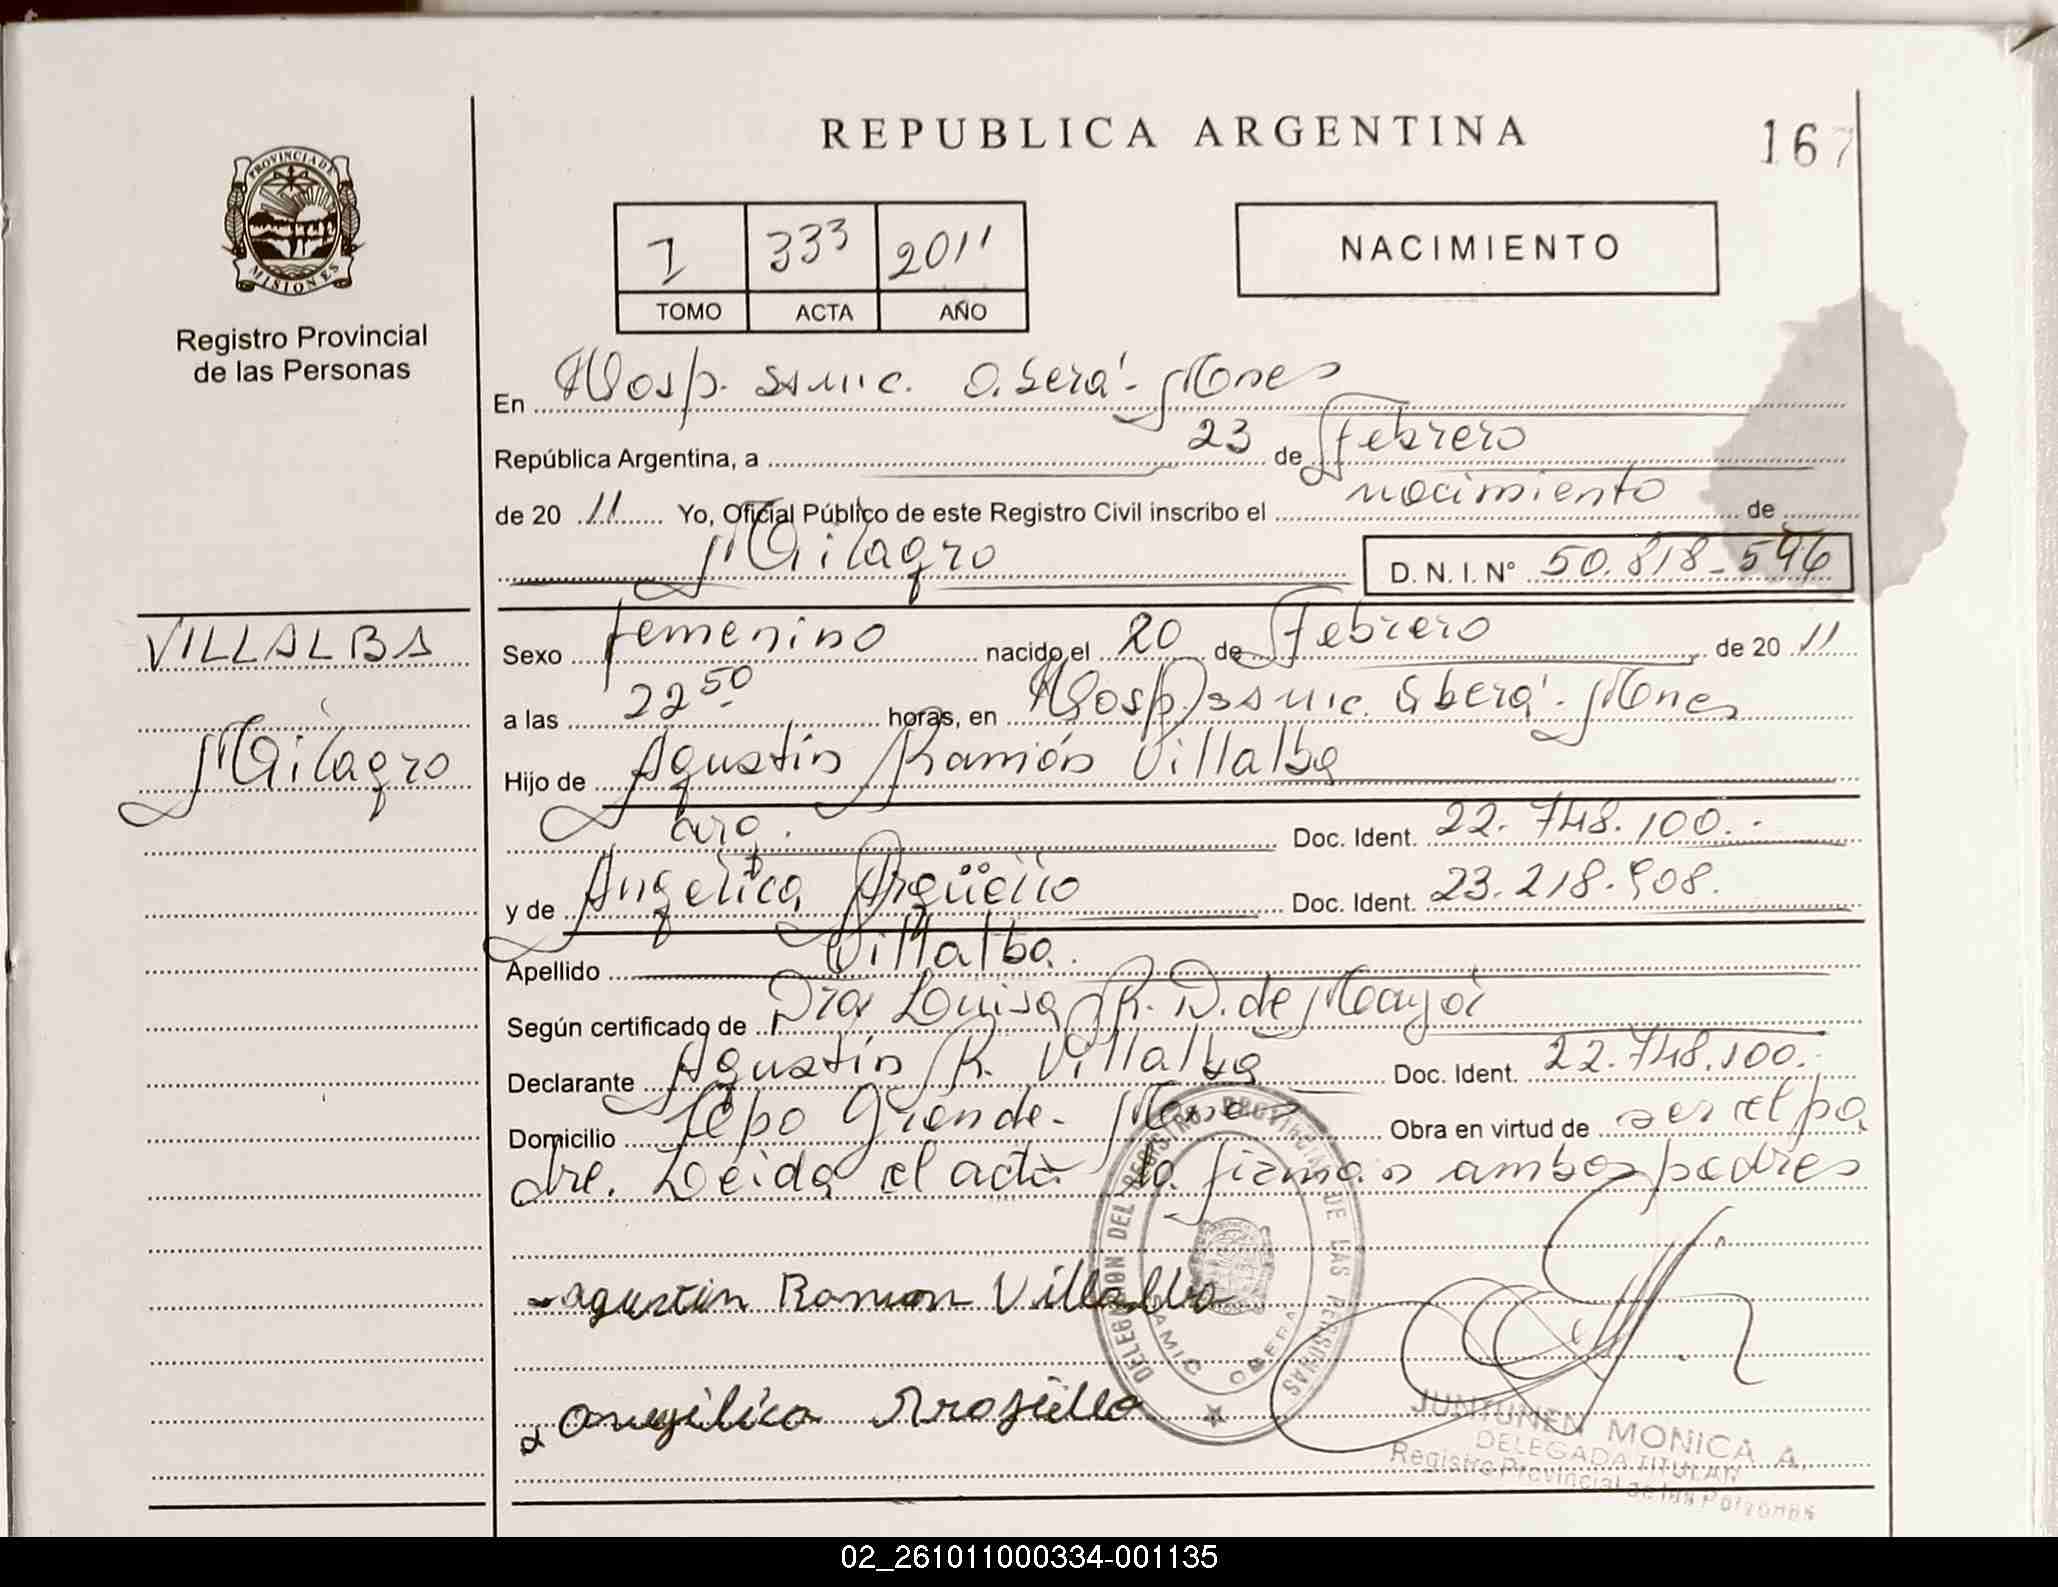 REPUBLICA ARGENTINA
167
PROVINCIA DE
MISIONES
Registro Provincial
de las Personas
I 333 2011
TOMO ACTA AÑO
NACIMIENTO
En Hosp. SSMIC. Oberá - Mnes
República Argentina, a 23 de Febrero
de 20 11 Yo, Oficial Público de este Registro Civil inscribo el nacimiento de
Milagro
D. N. I. N° 50.818-546
VILLALBA
Milagro
Sexo femenino nacido el 20 de Febrero de 20 11
a las 22 50 horas, en Hosp. SSMIC. Oberá - Mnes
Hijo de Agustín Ramón Villalba
arg. Doc. Ident. 22.748.100.-
y de Angelica Argüello Doc. Ident. 23.218.908.
Apellido Villalba.
Según certificado de Dra Luisa R. D. de
Declarante Agustín R. Villalba Doc. Ident. 22.748.100.-
Domicilio Grande - Mnes Obra en virtud de ser el pa
dre. Leida el acta la firman ambos padres
DELEGACION DEL REGISTRO PROVINCIAL DE LAS PERSONAS
SAMIC OBERA
Agustin Ramon Villalba
Angelica
JUNTUNEN MONICA A.
DELEGADA TITULAR
Registro Provincial de las Personas
02_261011000334-001135